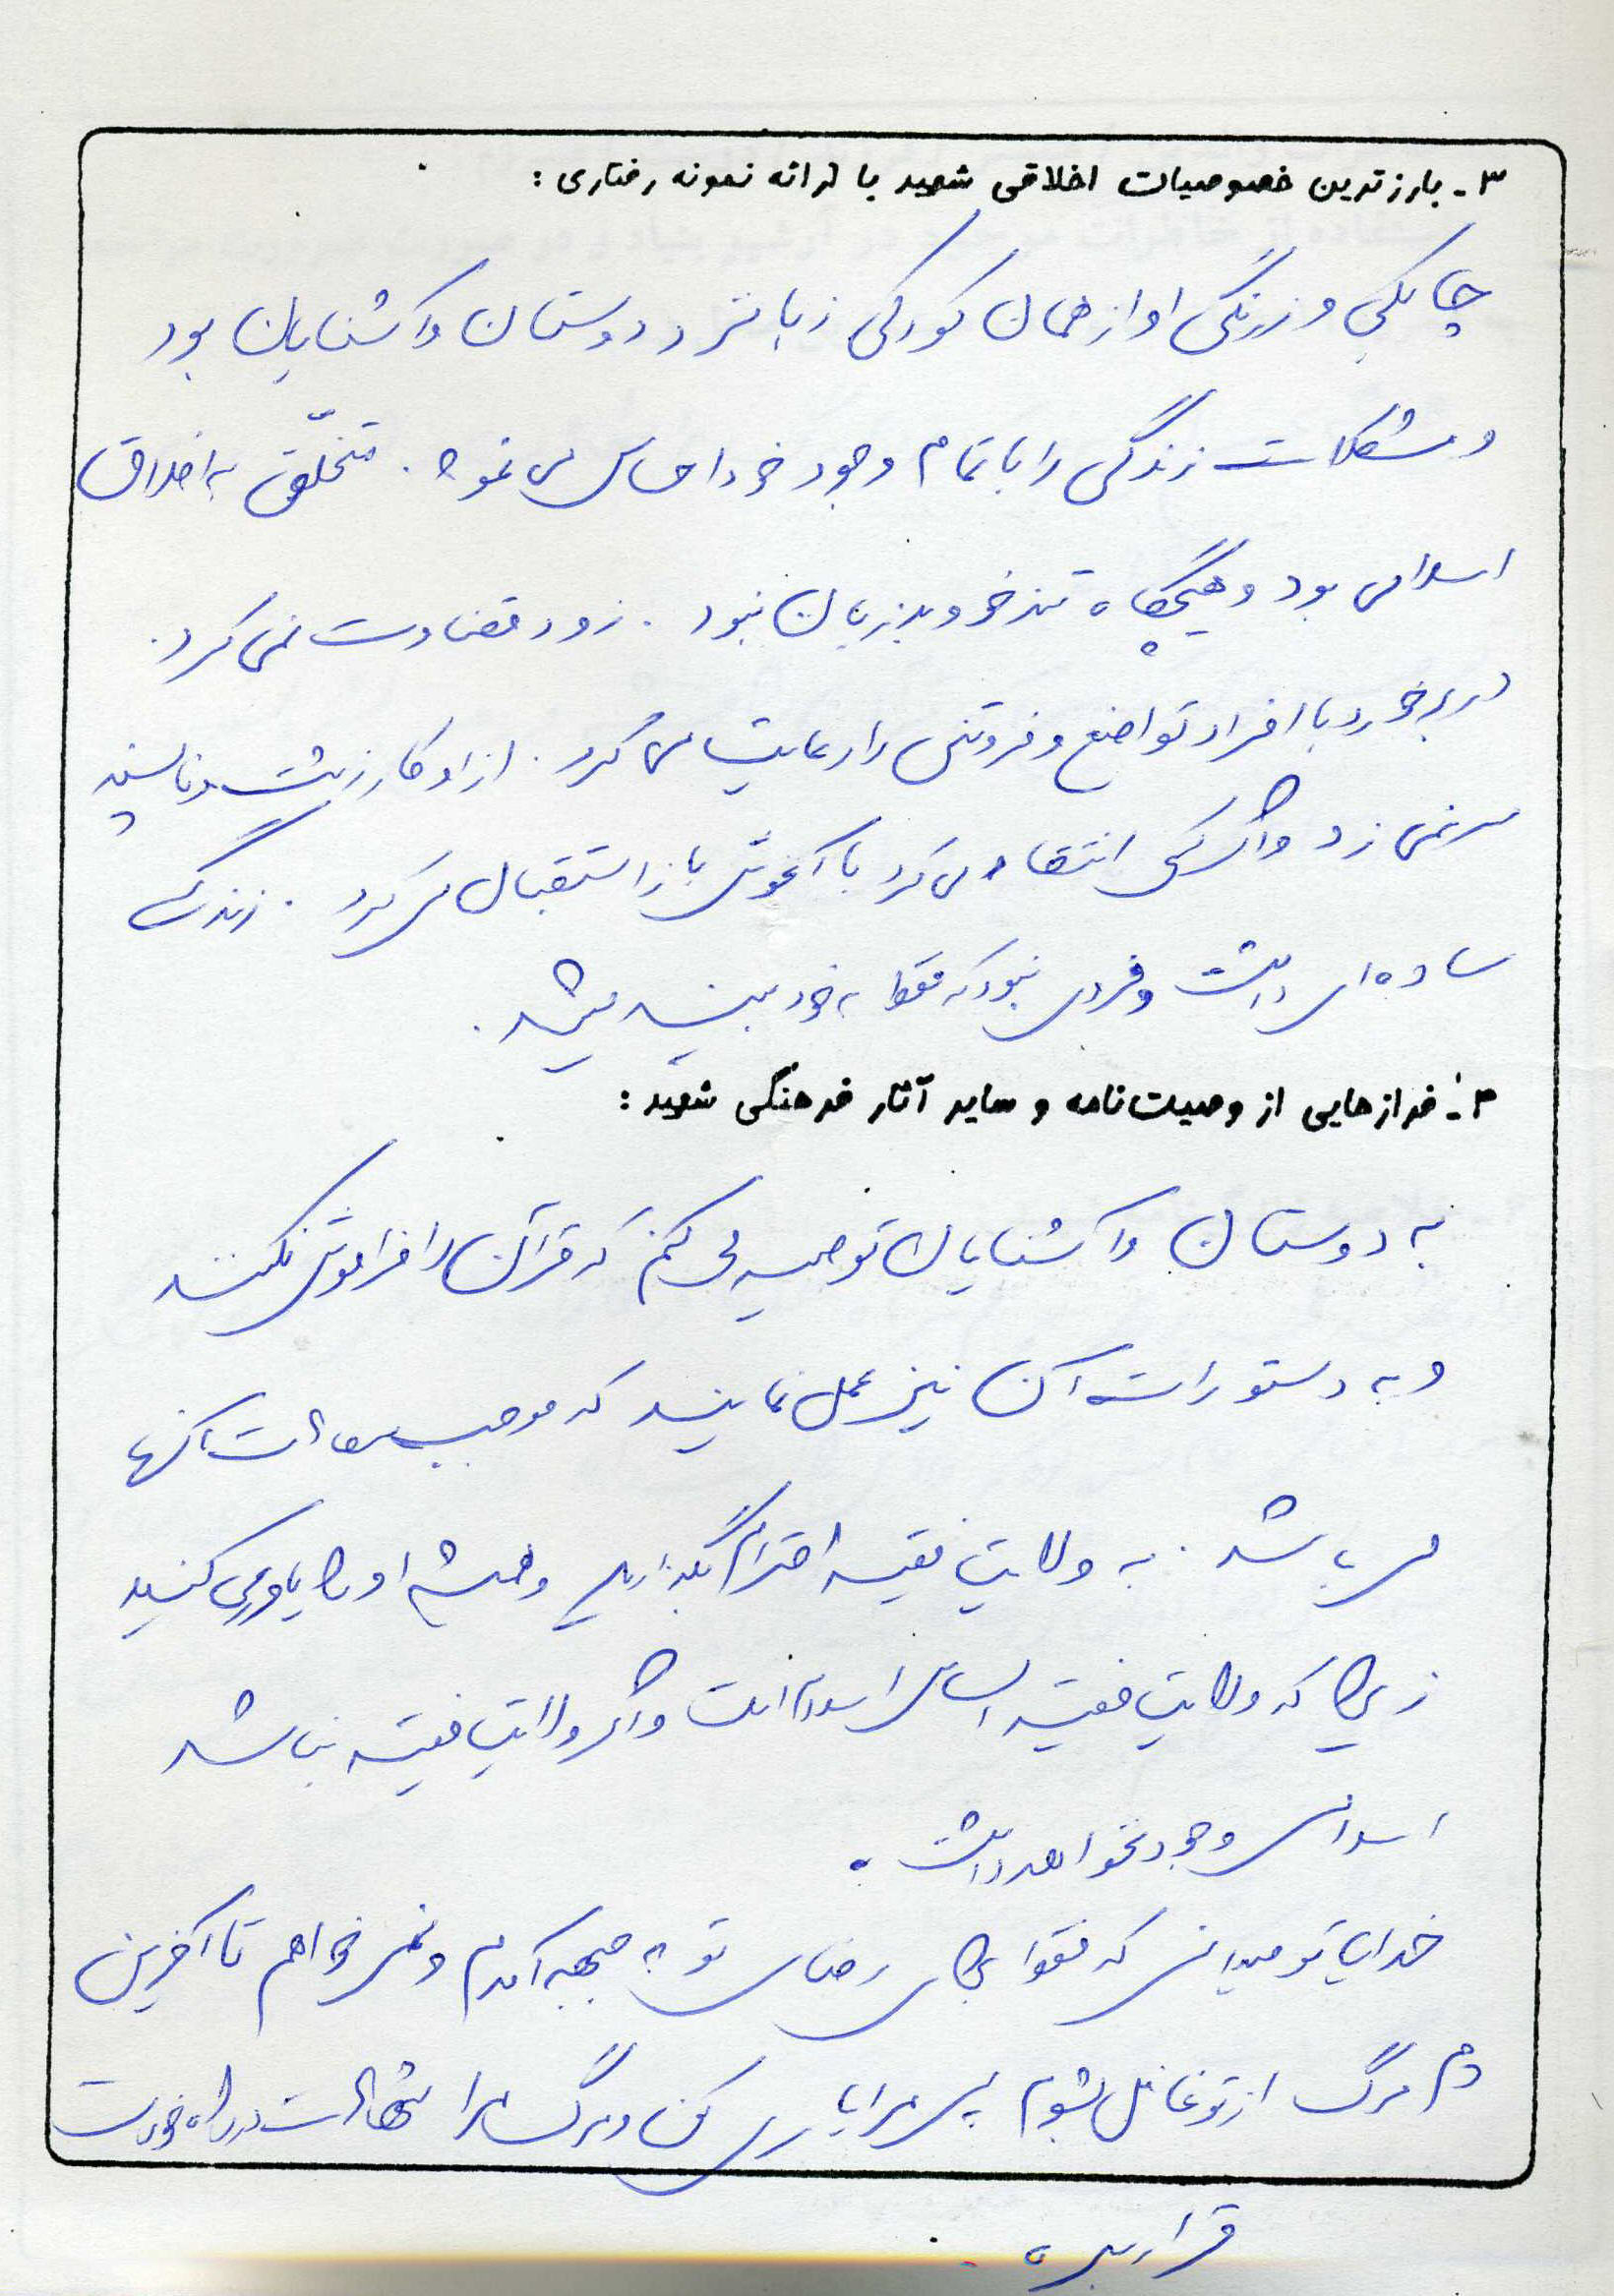 ۳- بارزترین خصوصیات اخلاقی شهید با ارائه نمونه رفتاری :
چابکی و زرنگی او از همان کودکی زبانزد دوستان و آشنایان بود
و مشکلات زندگی را با تمام وجود خود احساس می نمود . متخلّق به اخلاق
اسلامی بود و هیچگاه تندخو و بدزبان نبود . زود قضاوت نمی کرد .
در برخورد با افراد تواضع و فروتنی را رعایت می کرد . از او کار زشت و ناپسند
سر نمی زد و اگر کسی انتقاد می کرد با آغوش باز استقبال می کرد . زندگی
ساده ای داشت و فردی نبود که فقط به خود بیندیشد .
۴- فرازهایی از وصیت‌نامه و سایر آثار فرهنگی شهید :
به دوستان و آشنایان توصیه می کنم که قرآن را فراموش نکنند
و به دستورات آن نیز عمل نمایند که موجب سعادت آنها
می باشد . به ولایت فقیه احترام بگذارید و همیشه او را یاوری کنید
زیرا که ولایت فقیه اساس اسلام است و اگر ولایت فقیه نباشد
اسلامی وجود نخواهد داشت .
خدایا تو میدانی که فقط برای رضای تو به جبهه آمدم و نمی خواهم تا آخرین
دم مرگ از تو غافل بشوم پس مرا یاری کن و مرگ مرا شهادت در راه خودت
قرار بده .